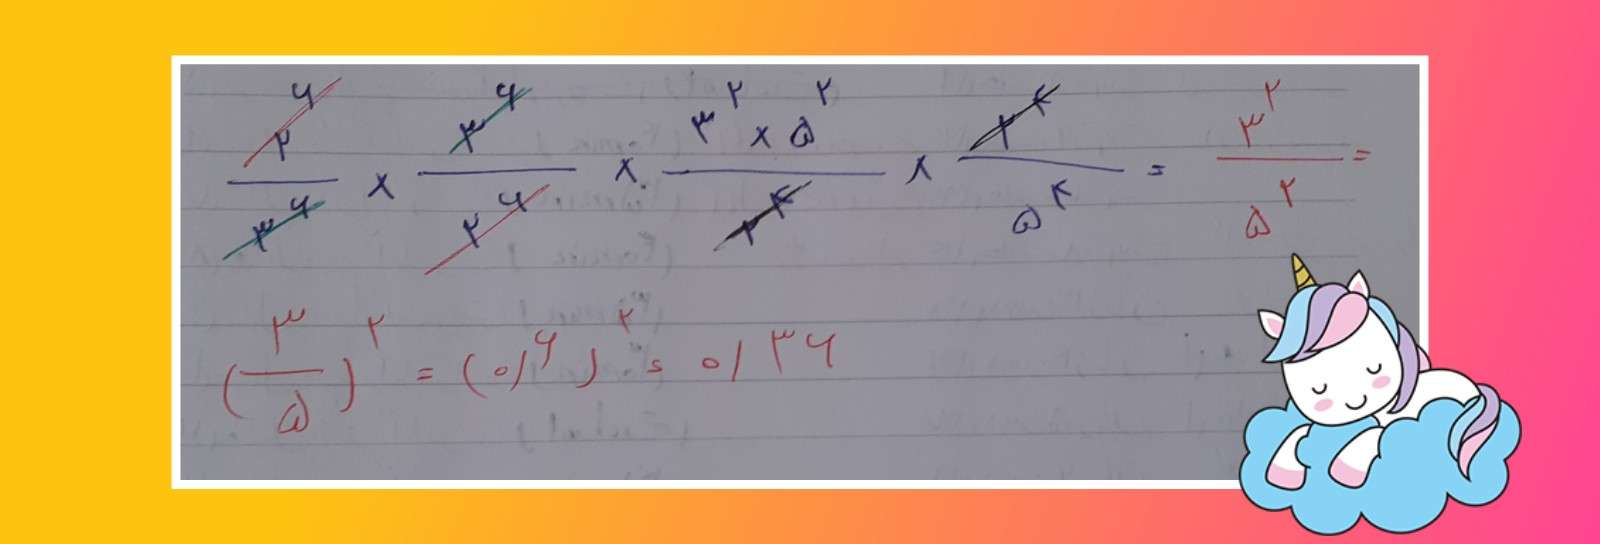 ۲^۶/۳^۶ × ۳^۶/۲^۶ × (۳^۲ × ۵^۲)/۲^۴ × ۲^۴/۵^۴ = ۳^۲/۵^۲ =
(۳/۵)^۲ = (۰/۶)^۲ = ۰/۳۶